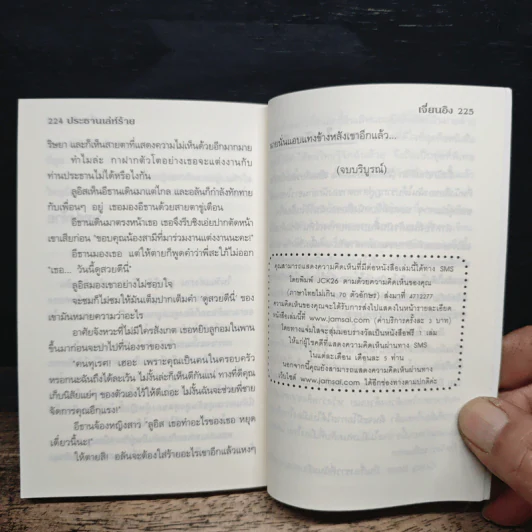 224 ประธานเล่ห์ร้าย
ริษยา และก็เห็นสายตาที่แสดงความไม่เห็นด้วยอีกมากมาย
ทำไมล่ะ กาฝากตัวโตอย่างเธอจะแต่งงานกับ
ท่านประธานไม่ได้หรือไงกัน
ลูอิสเห็นอีธานเดินมาแต่ไกล และอลันก็กำลังทักทาย
กับเพื่อนๆ อยู่ เธอมองอีธานด้วยสายตาขู่เตือน
อีธานเดินมาตรงหน้าเธอ เธอจึงรีบชิงเอ่ยปากตัดหน้า
เขาเสียก่อน "ขอบคุณน้องสามีที่มาร่วมงานแต่งงานนะคะ!"
อีธานมองเธอ แต่ให้ตายก็พูดคำว่าพี่สะใภ้ไม่ออก
"เธอ... วันนี้ดูสวยดีนี่"
ลูอิสมองเขาอย่างไม่ชอบใจ
จะชมก็ไม่ชมให้มันเต็มปากเต็มคำ 'ดูสวยดีนี่' ของ
เขามันหมายความว่าอะไร
อาศัยจังหวะที่ไม่มีใครสังเกต เธอหยิบลูกอมในพาน
ขึ้นมาก่อนจะปาไปที่น่องขาของเขา
"คนทุเรศ! เฮอะ เพราะคุณเป็นคนในครอบครัว
หรอกนะฉันถึงได้ละเว้น ไม่งั้นล่ะก็เห็นดีกันแน่ ทางที่ดีคุณ
เก็บนิสัยแย่ๆ ของตัวเองไว้ให้ดีเถอะ ไม่งั้นฉันจะช่วยพี่ชาย
จัดการคุณอีกแรง!"
อีธานจ้องหญิงสาว "ลูอิส เธอทำอะไรของเธอ หยุด
เดี๋ยวนี้นะ!"
ให้ตายสิ! อลันจะต้องใส่ร้ายอะไรเขาอีกแล้วแหงๆ
เจี่ยนอิง 225
(จบบริบูรณ์)
คุณสามารถแสดงความคิดเห็นที่มีต่อหนังสือเล่มนี้ได้ทาง SMS
โดยพิมพ์ JCK26 ตามด้วยความคิดเห็นของคุณ
(ภาษาไทยไม่เกิน 70 ตัวอักษร) ส่งมาที่ 4713377
ความคิดเห็นของคุณจะได้รับการส่งไปแสดงในหน้ารายละเอียด
หนังสือเล่มนี้ที่ www.jamsai.com (ค่าบริการครั้งละ 3 บาท)
โดยทางแจ่มใสจะสุ่มมอบรางวัลเป็นหนังสือฟรี 1 เล่ม
ให้แก่ผู้โชคดีที่แสดงความคิดเห็นผ่านทาง SMS
ในแต่ละเดือน เดือนละ 5 ท่าน
นอกจากนี้คุณยังสามารถแสดงความคิดเห็นผ่านทาง
เว็บไซต์ www.jamsai.com ได้อีกช่องทางตามปกติค่ะ